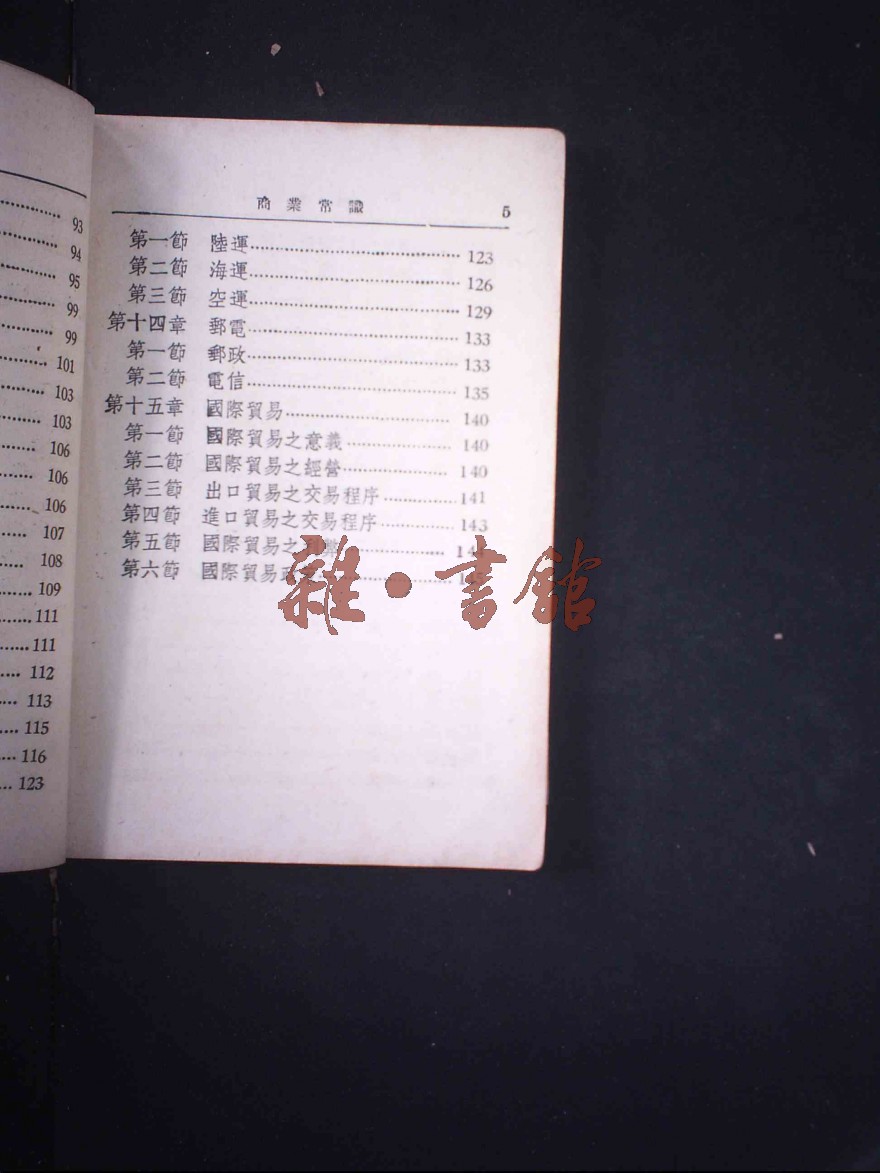 93
94
95
99
99
101
103
103
106
106
106
107
108
109
111
111
112
113
115
116
123
商業常識 5
第一節 陸運 123
第二節 海運 126
第三節 空運 129
第十四章 郵電 133
第一節 郵政 133
第二節 電信 135
第十五章 國際貿易 140
第一節 國際貿易之意義 140
第二節 國際貿易之經營 140
第三節 出口貿易之交易程序 141
第四節 進口貿易之交易程序 143
第五節 國際貿易之
第六節 國際貿易
雜·書館